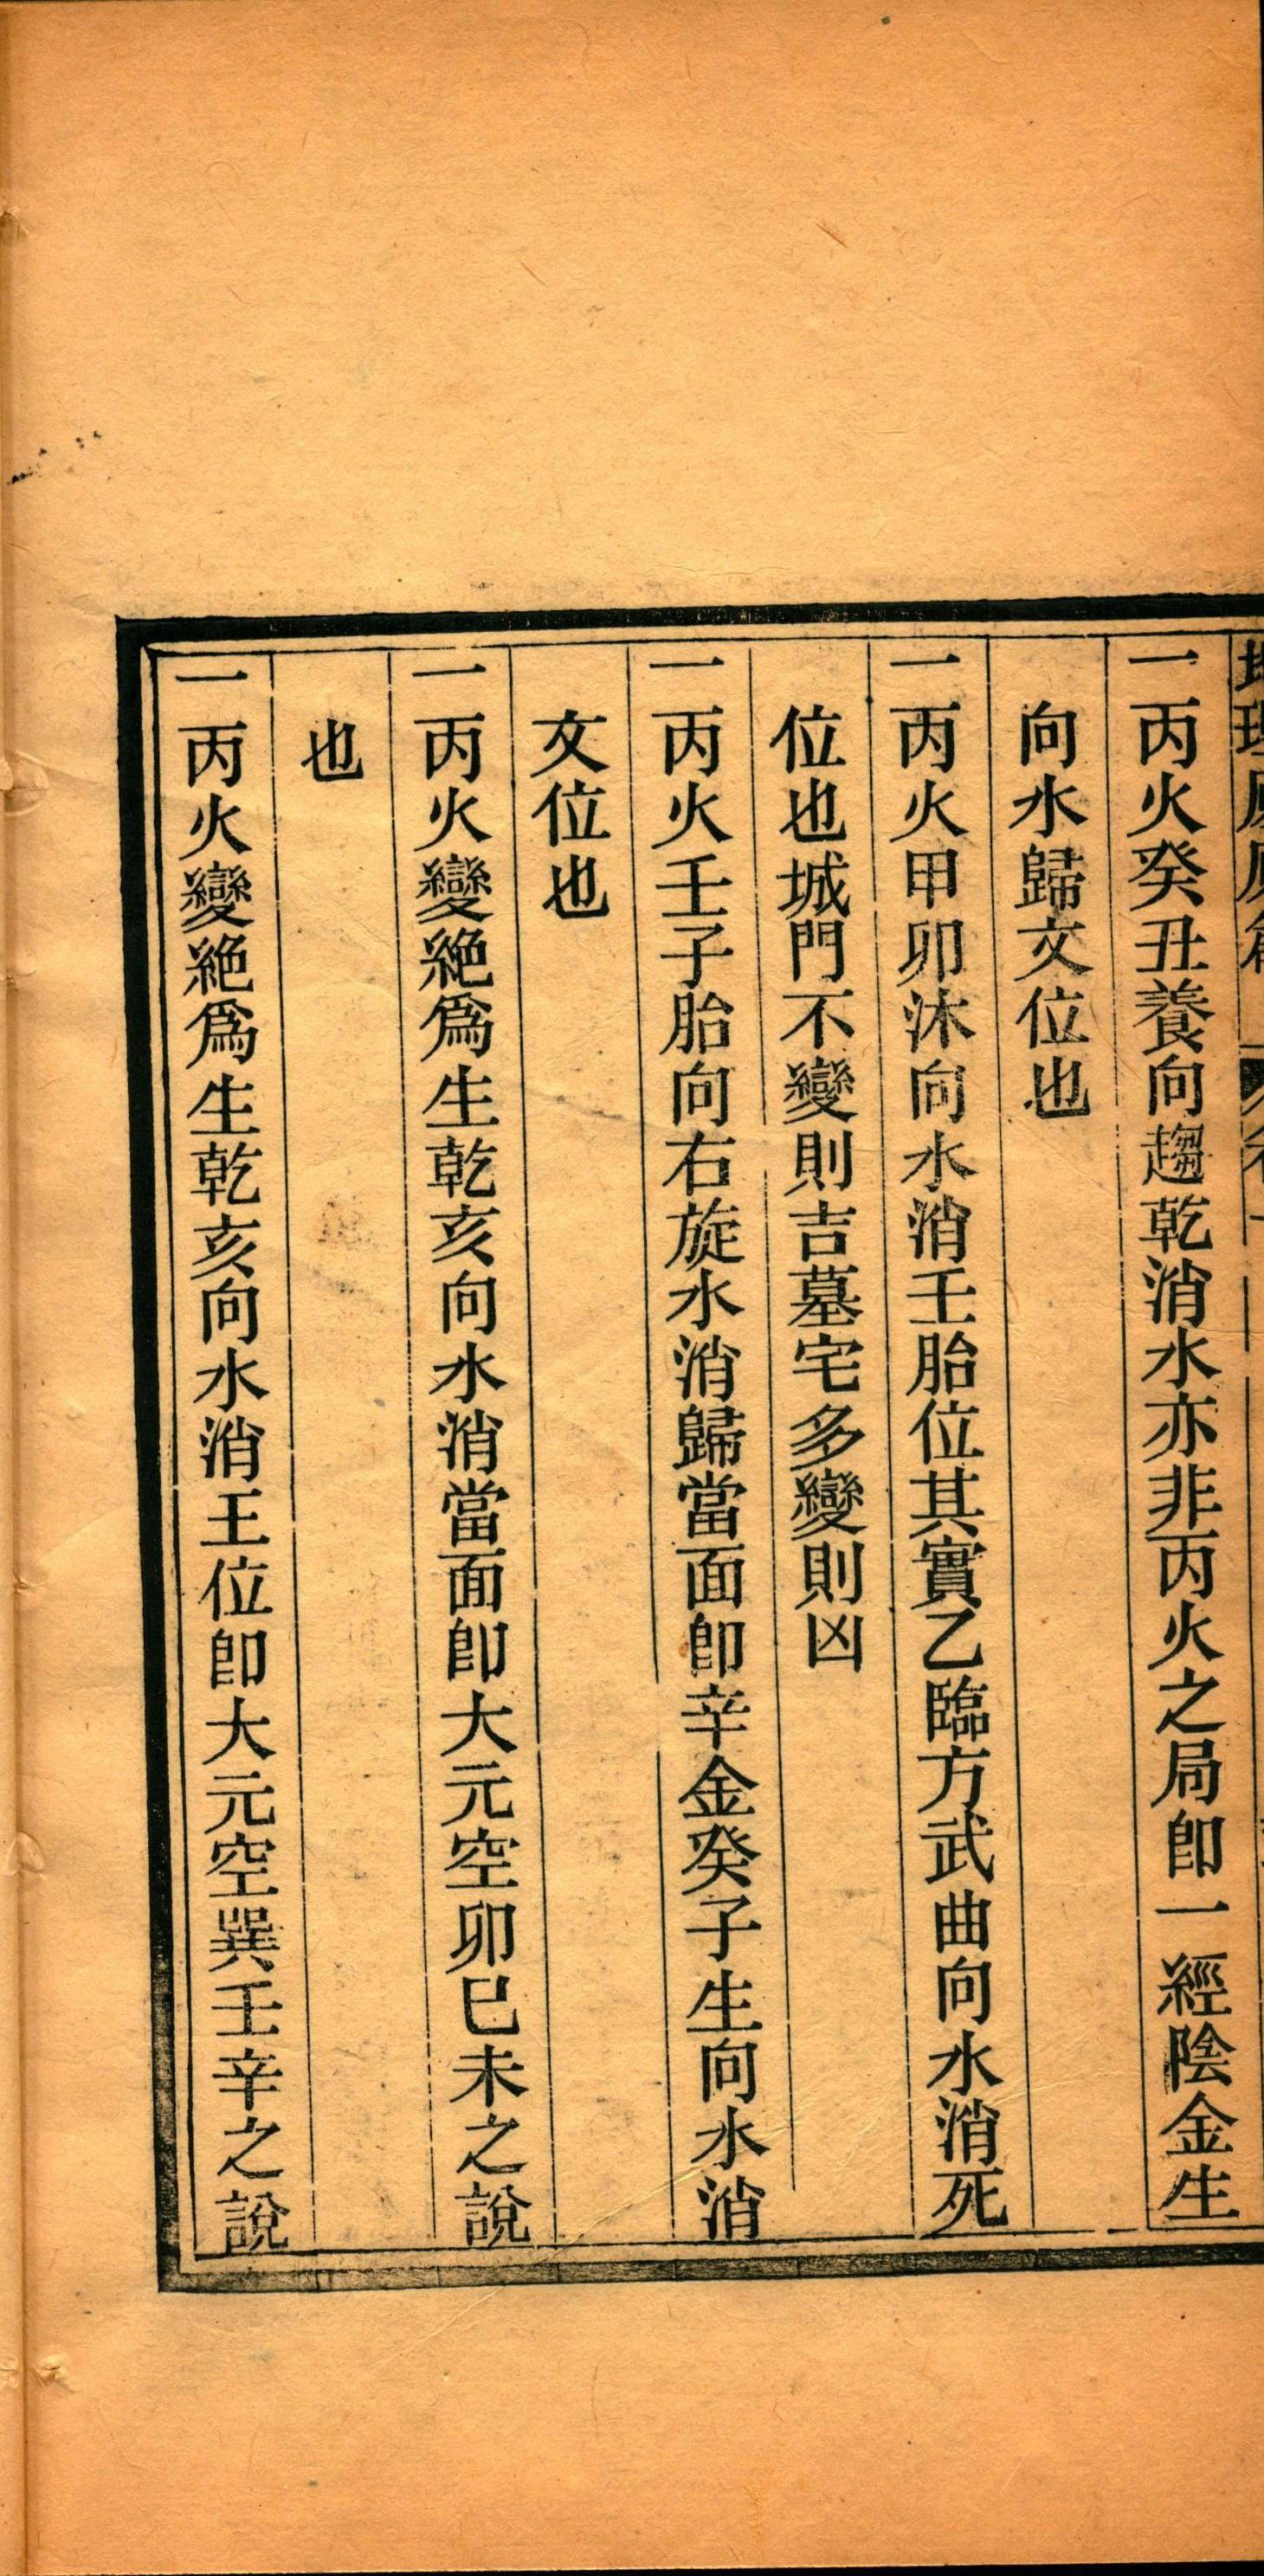 一丙火癸丑養向趨乾消水亦非丙火之局卽一經陰金生
向水歸文位也
一丙火甲卯沐向水消壬胎位其實乙臨方武曲向水消死
位也城門不變則吉墓宅多變則凶
一丙火壬子胎向右旋水消歸當面卽辛金癸子生向水消
文位也
一丙火變絶爲生乾亥向水消當面卽大元空卯巳未之說
也
一丙火變絶爲生乾亥向水消王位卽大元空巽壬辛之說